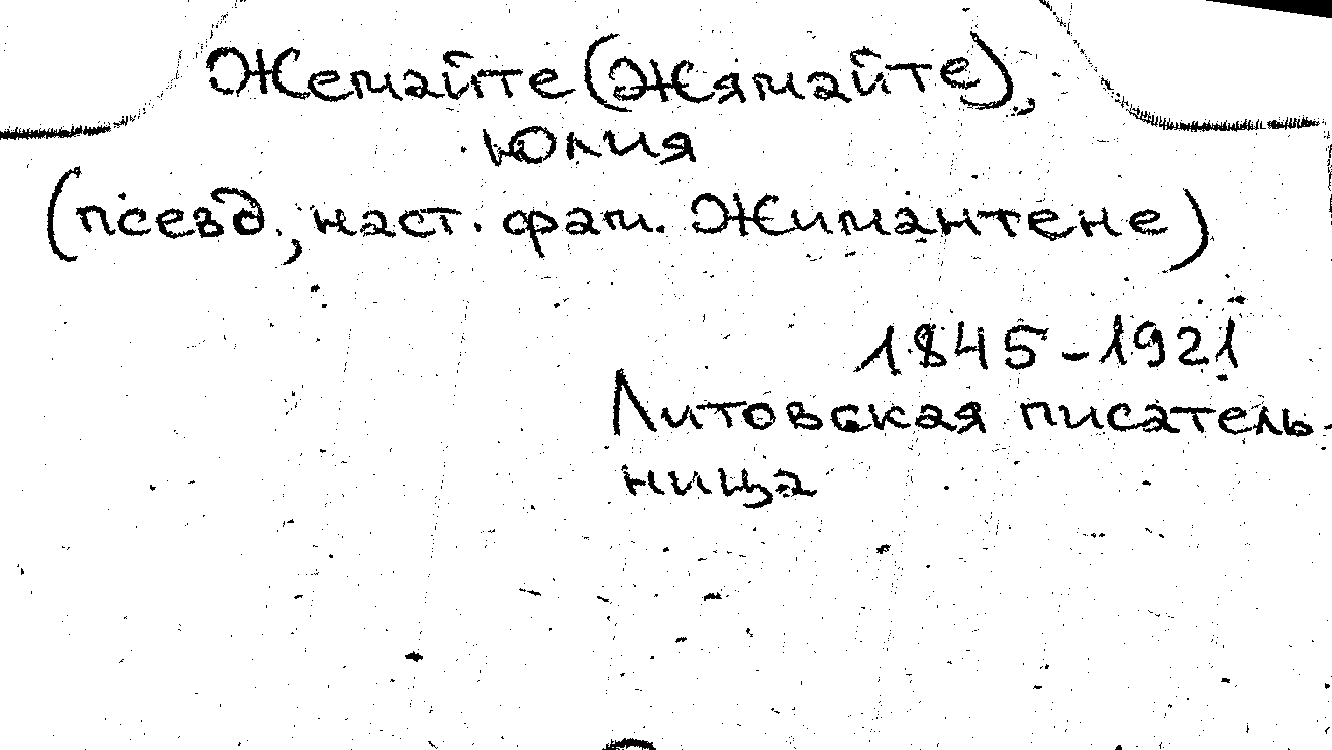 Жемайте (Жямайте),
Юлия
(псевд., наст. фам. Жимантене)
1845-1921
Литовская писатель-
ница